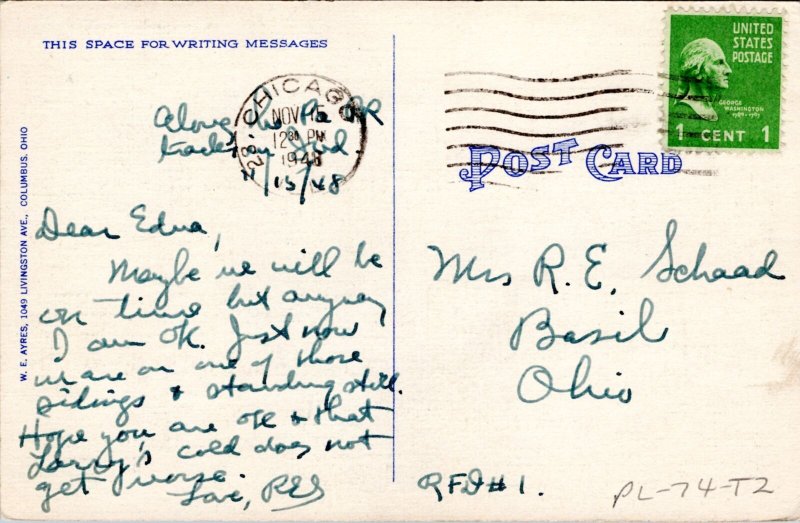 THIS SPACE FOR WRITING MESSAGES
W. E. AYRES, 1049 LIVINGSTON AVE., COLUMBUS, OHIO
Along the Pa RR
tracks in Ind.
11/15/48
Dear Edna,
Maybe we will be
on time but anyway
I am OK. Just now
we are on one of those
sidings & standing still.
Hope you are OK & that
Larry's cold does not
get worse.
Love, RES
CHICAGO
NOV 15
12 30 PM
1948
UNITED
STATES
POSTAGE
GEORGE
WASHINGTON
1789-1797
1 CENT 1
POST CARD
Mrs R. E. Schaad
Basil
Ohio
RFD#1.
PL-74-T2